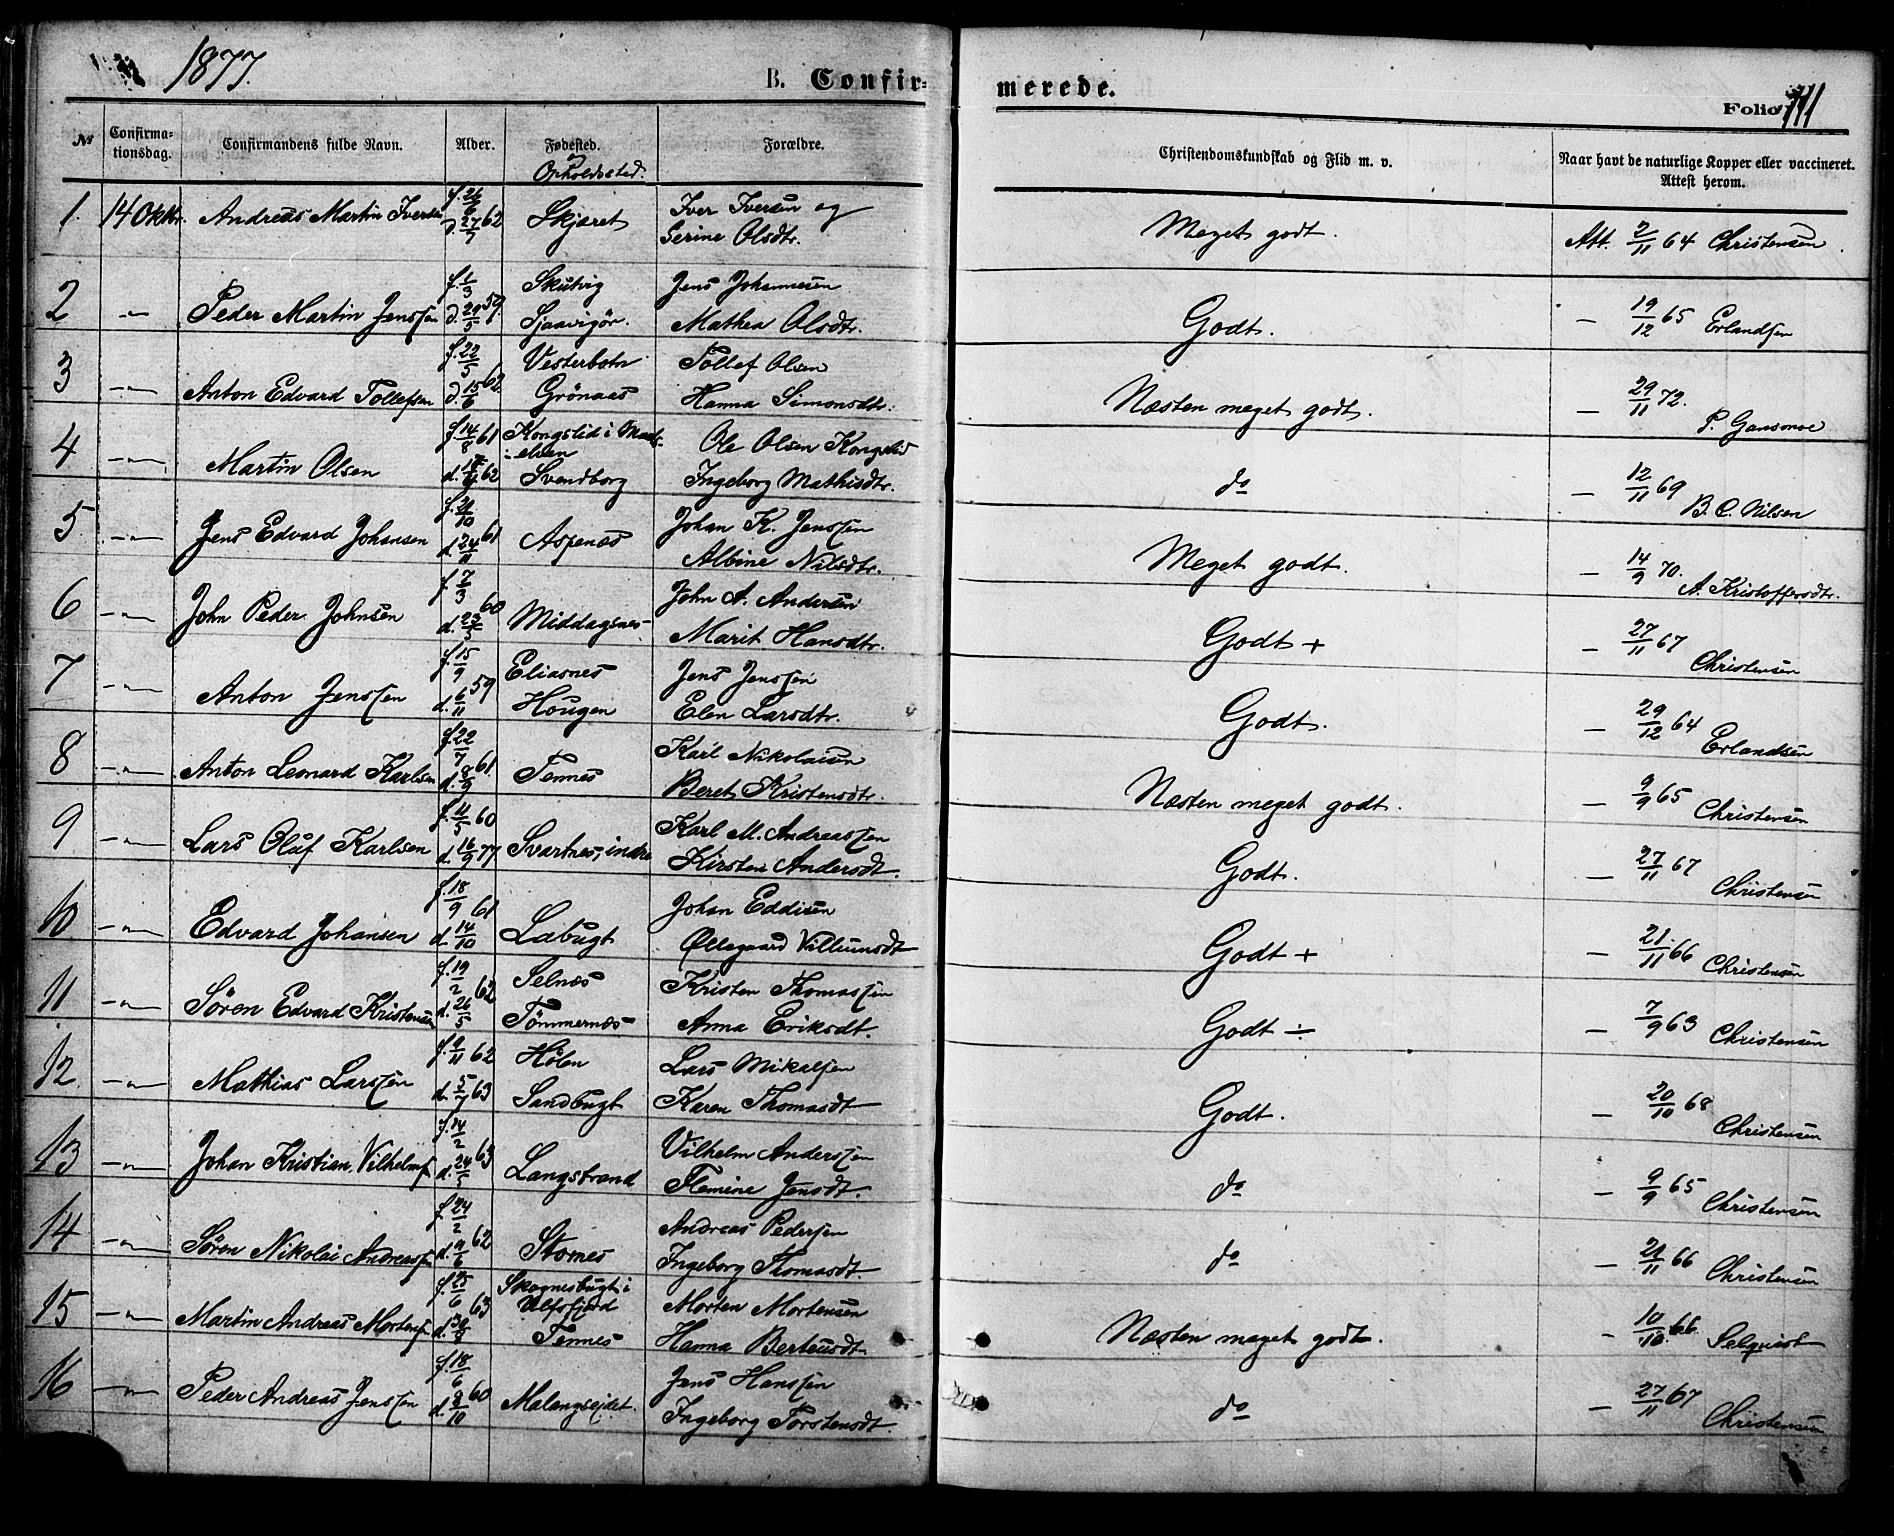 1877.
B. Confir-
merede.
Folio 111
№
Confirma-
tionsdag.
Confirmandens fulde Navn.
Alder.
Fødested.
Opholdssted.
Forældre.
Christendomskundskab og Flid m. v.
Naar havt de naturlige Kopper eller vaccineret.
Attest herom.
1. 14 Oktbr. Andreas Martin Iversen f. 26/6 d. 27/7 62 Skjæret Iver Iversen og
Serine Olsdtr. Meget godt. Att. 2/11 64 Christensen
2 -"- Peder Martin Jenssen f. 1/3 d. 29/5 59. Skutvig Jens Johannesen
Sjaavigør. Mathea Olsdtr. Godt. — 19/12 65 Erlandsen
3 -"- Anton Edvard Tollefsen f. 22/5 d. 15/6 62 Vesterbotn Tollef Olsen
Grönaas Hanna Simonsdtr. Næsten meget godt. — 29/11 72. P. Gansmoe
4 -"- Martin Olsen f. 14/8 61 Kongslid i Maals-
elven Ole Olsen Kongslid
d. 62 Svendborg Ingeborg Mathisdtr. do — 12/11 69 B. C. Nilsen
5 -"- Jens Edvard Johansen f. 21/10 d. 24/11 61 Aspenæs Johan K. Jenssen
Albine Nilsdtr. Meget godt. — 14/9 70. A. Kristoffersdtr.
6 -"- John Peder Johnsen f. 7/3 d. 23/5 60 Middagsnes John A. Andersen
Marit Hansdtr. Godt + — 27/11 67 Christensen
7 -"- Anton Jenssen f. 15/9 d. 6/11 59 Eliasnes Jens Jenssen
Hougen Elen Larsdtr. Godt. — 29/12 64 Erlandsen
8 -"- Anton Leonard Karlsen f. 22/7 d. 8/9 61 Tennes Karl Nikolaisen
Beret Kristensdtr. Næsten meget godt. — 9/9 65 Christensen
9 -"- Lars Oluf Karlsen f. 11/5 60 d. 16/9 77 Svartnes, indre Karl M. Andreassen
Kirsten Andersdt. Godt. — 27/11 67 Christensen
10 -"- Edvard Johansen f. 18/9 d. 14/10 61 Labugt Johan Eddisen
Øllegaard Villumsdt Godt + — 21/11 66 Christensen
11 -"- Sören Edvard Kristensen f. 19/2 d. 26/5 62 Selnes Kristen Thomassen
Tömmernes Anna Eriksdt. Godt ÷ — 7/9 63 Christensen
12 -"- Mathias Larssen f. 9/11 62 Hølen Lars Mikalsen
d. 5/7 63 Sandbugt Karen Thomasdt Godt. — 20/10 68 Christensen
13 -"- Johan Kristian Vilhelms. f. 14/2 d. 24/5 63 Langstrand Vilhelm Anderssen
Flemine Jensdt. do — 9/9 65 Christensen
14 -"- Sören Nikolai Andreassen f. 24/2 d. 9/6 62 Stornes Andreas Pedersen
Ingeborg Thomasdt. do — 21/11 66 Christensen
15 -"- Martin Andreas Mortens. f. 25/6 d. 30/8 63 Skognesbugt i
Ulfsfjord Morten Mortensen
Tennes Hanna Berteusdt. Næsten meget godt. — 10/10 66 Selquist
16 -"- Peder Andreas Jenssen f. 18/6 d. 8/10 60 Malangseidet. Jens Hanssen
Ingeborg Torstensdt. do — 27/11 67 Christensen